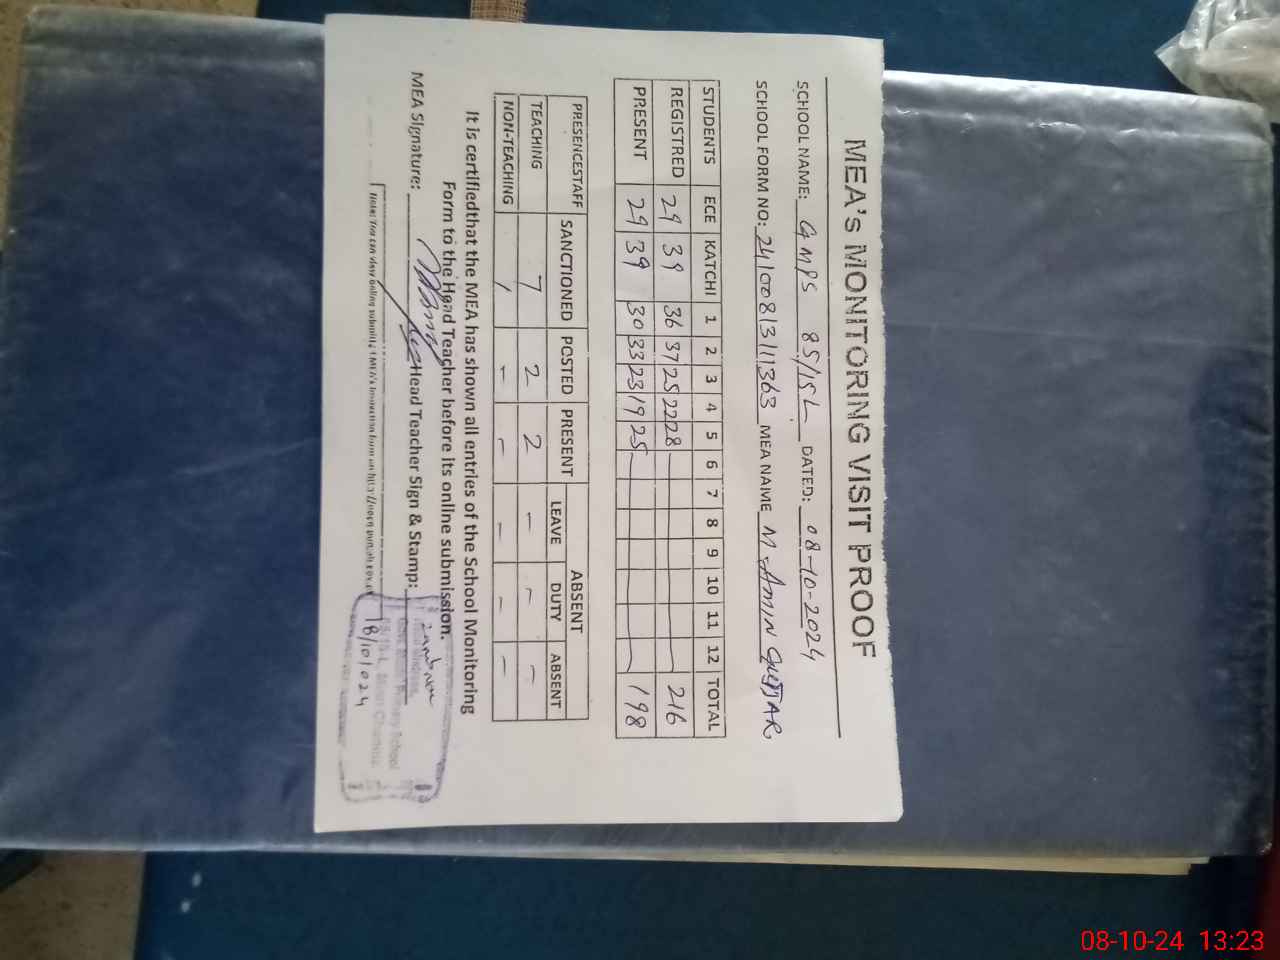 MEA's MONITORING VISIT PROOF
SCHOOL NAME: GMPS 85/15L DATED: 08-10-2024
SCHOOL FORM NO: 24100813111363 MEA NAME M. AMIN GUJJAR
STUDENTS ECE KATCHI 1 2 3 4 5 6 7 8 9 10 11 12 TOTAL
REGISTRED 29 39 36 37 25 22 28 216
PRESENT 29 39 30 33 23 19 25 198
PRESENCESTAFF SANCTIONED POSTED PRESENT ABSENT
LEAVE DUTY ABSENT
TEACHING 7 2 2 - - -
NON-TEACHING - - - - - -
It is certifiedthat the MEA has shown all entries of the School Monitoring
Form to the Head Teacher before its online submission.
MEA Signature: Head Teacher Sign & Stamp:
Primary School
18/10/024
08-10-24 13:23